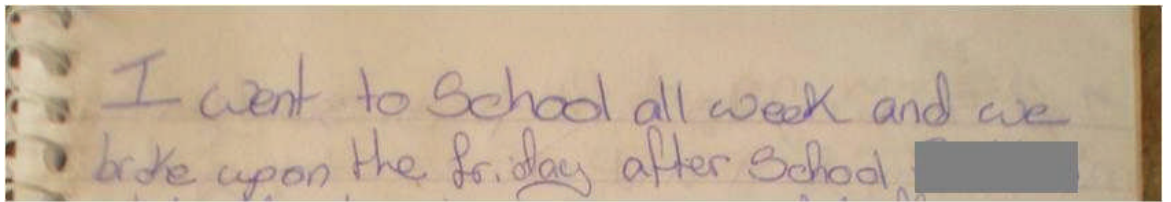 I went to School all week and we
broke upon the friday after School,